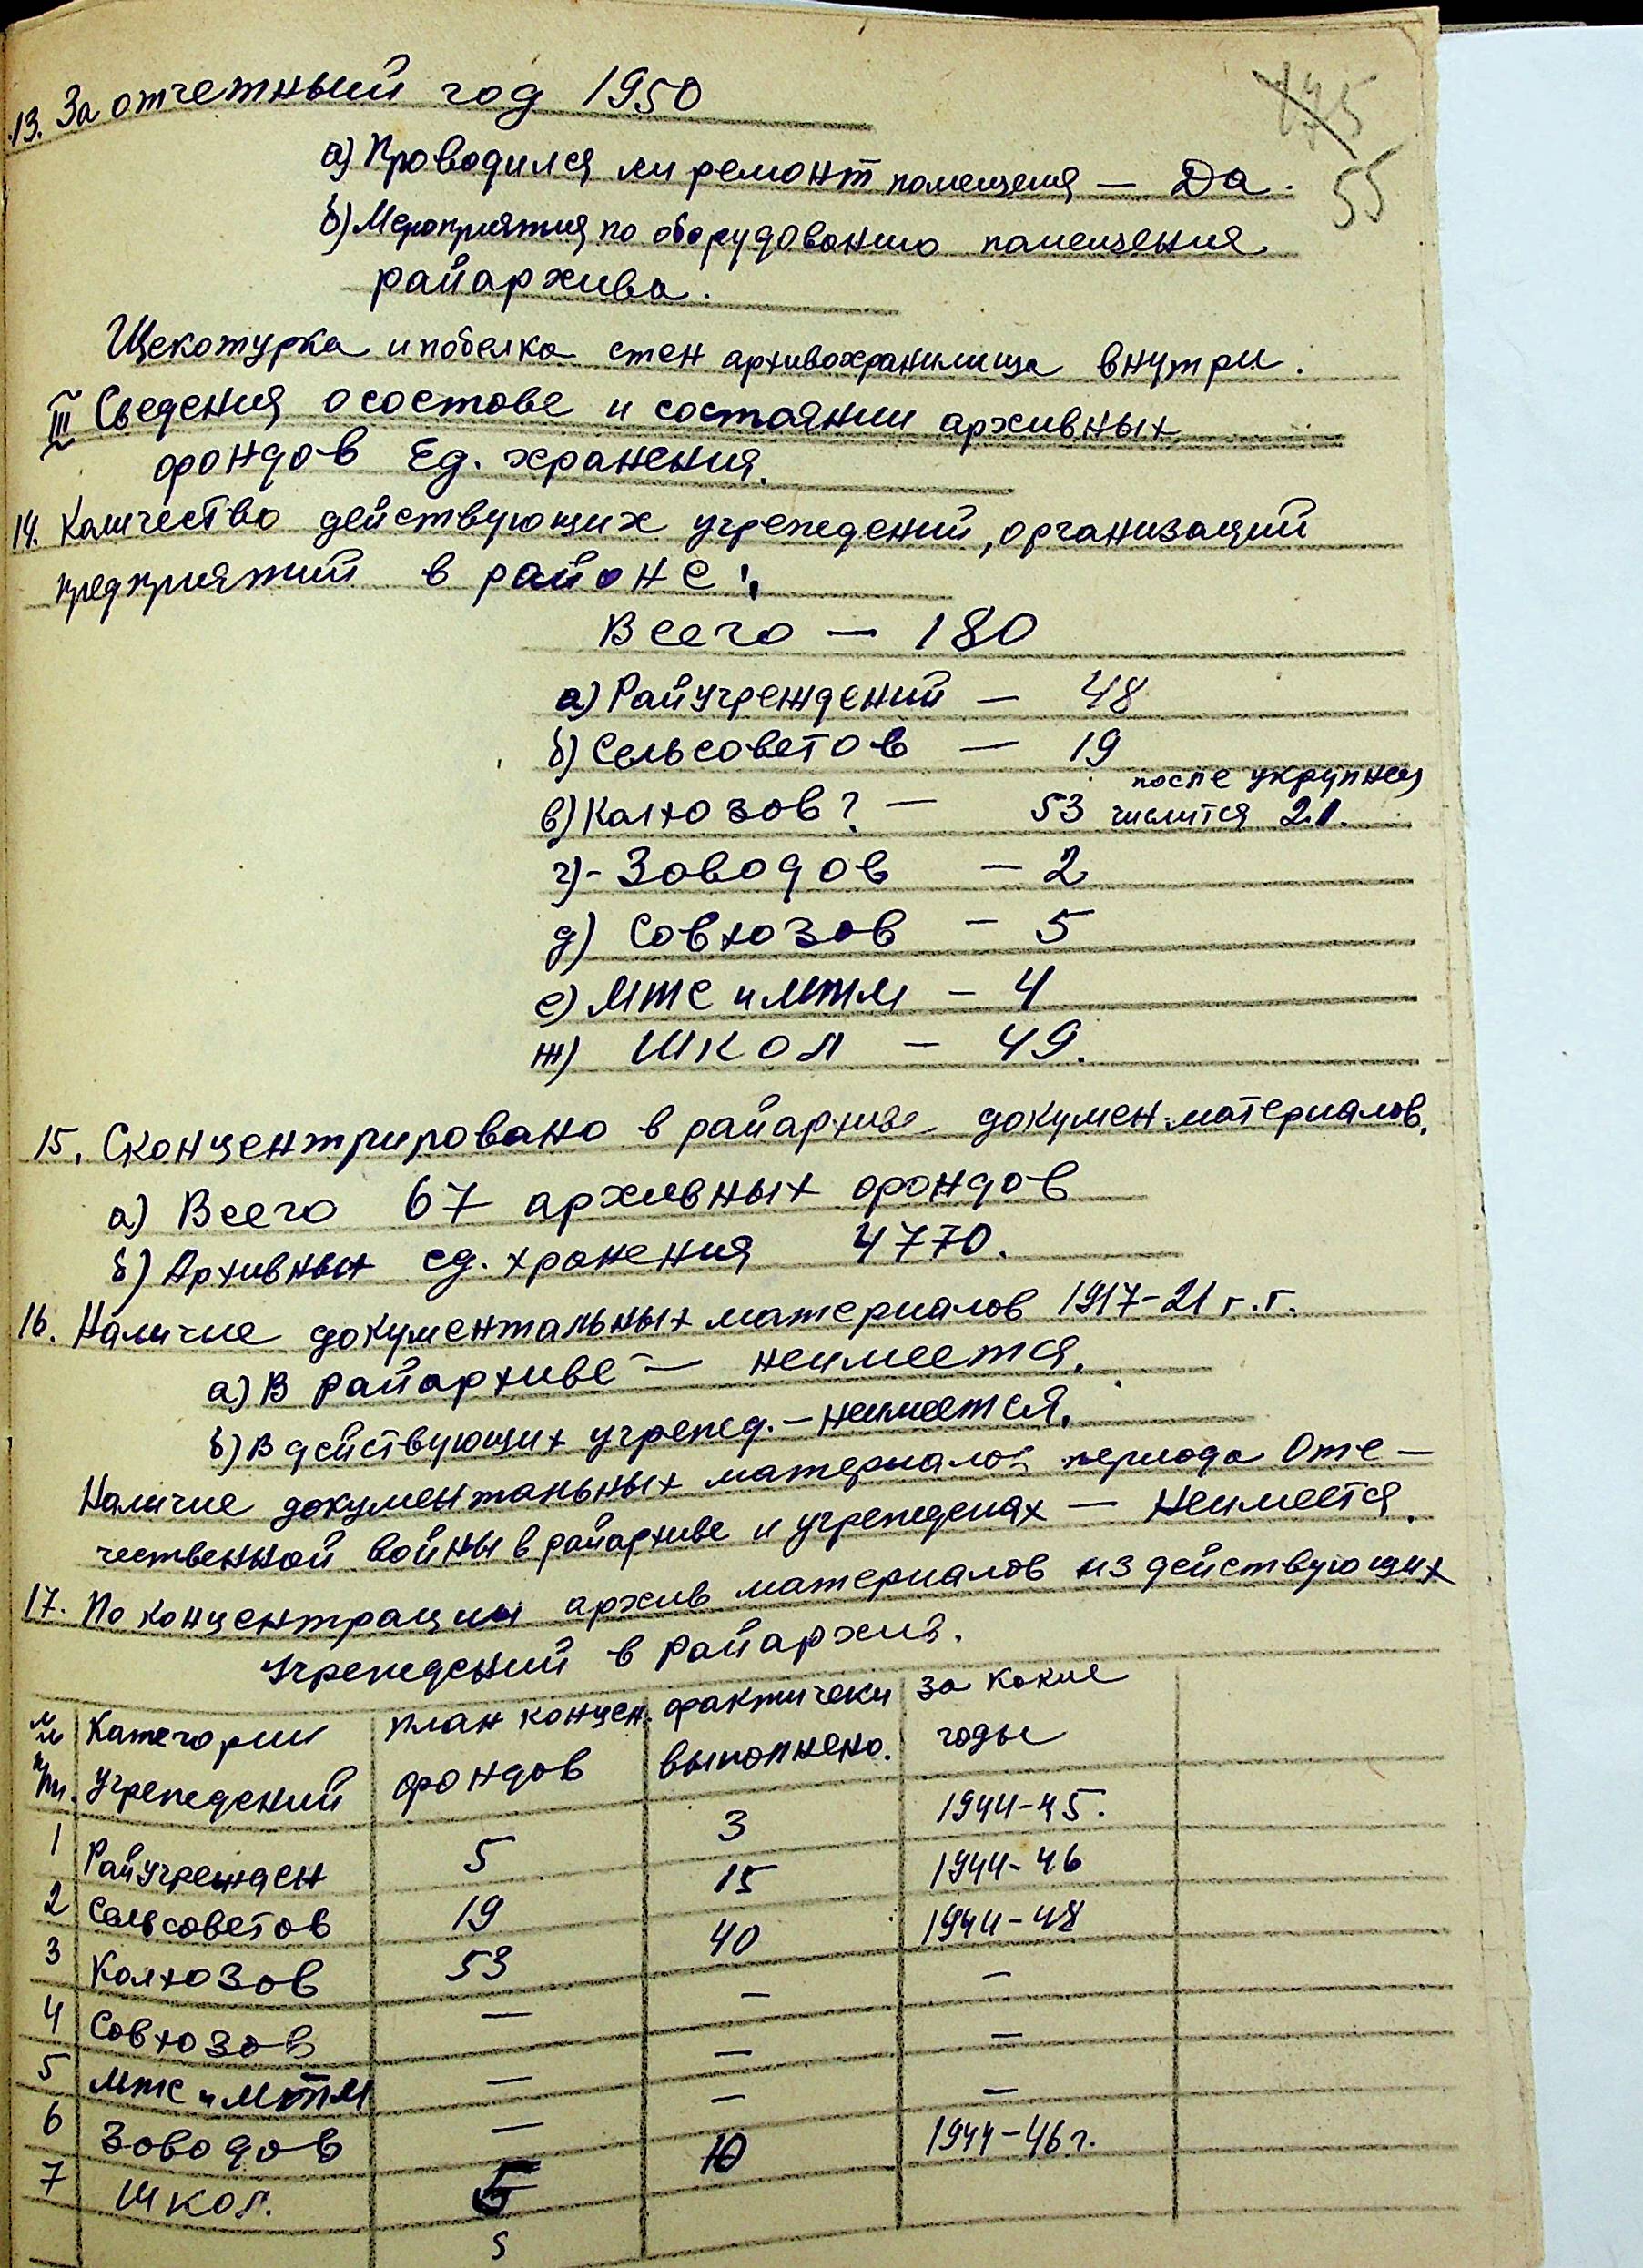 175
55
13. За отчетный год 1950
а) Проводился ли ремонт помещения — Да.
б) Мероприятия по оборудованию помещения
райархива.
Щекотурка и побелка стен архивохранилища внутри.
III Сведения о состове и состоянии архивных
фондов Ед. хранения.
14. Количество действующих учреждений, организаций
предприятий в районе:
Всего — 180
а) Райучреждений — 48
б) Сельсоветов — 19
после укрупнен
в) Колхозов? — 53 числится 21.
г) - Зоводов — 2
д) Совхозов — 5
е) МТС и МТМ — 4
ж) Школ — 49.
15. Сконцентрировано в райархиве докумен. материалов.
а) Всего 67 архивных фондов
б) Архивных ед. хранения 4770.
16. Наличие документальных материалов 1917-21 г.г.
а) В райархиве — неимеется.
б) В действующих учрежд. — неимеется.
Наличие документальных материалов периода Оте—
чественной войны в райархиве и учрежденах — Неимеется.
17. По концентрации архив материалов из действующих
Учреждений в райархив.
№№ Категории план концен. фактически за какие
п/п. Учреждений фондов выполнено. годы
1 Райучрежден 5 3 1944-45.
2 Сельсоветов 19 15 1944-46
3 Колхозов 53 40 1944-48
4 Совхозов — — —
5 МТС и МТМ — — —
6 Зоводов — — —
7 Школ. 5 10 1944-46 г.
5